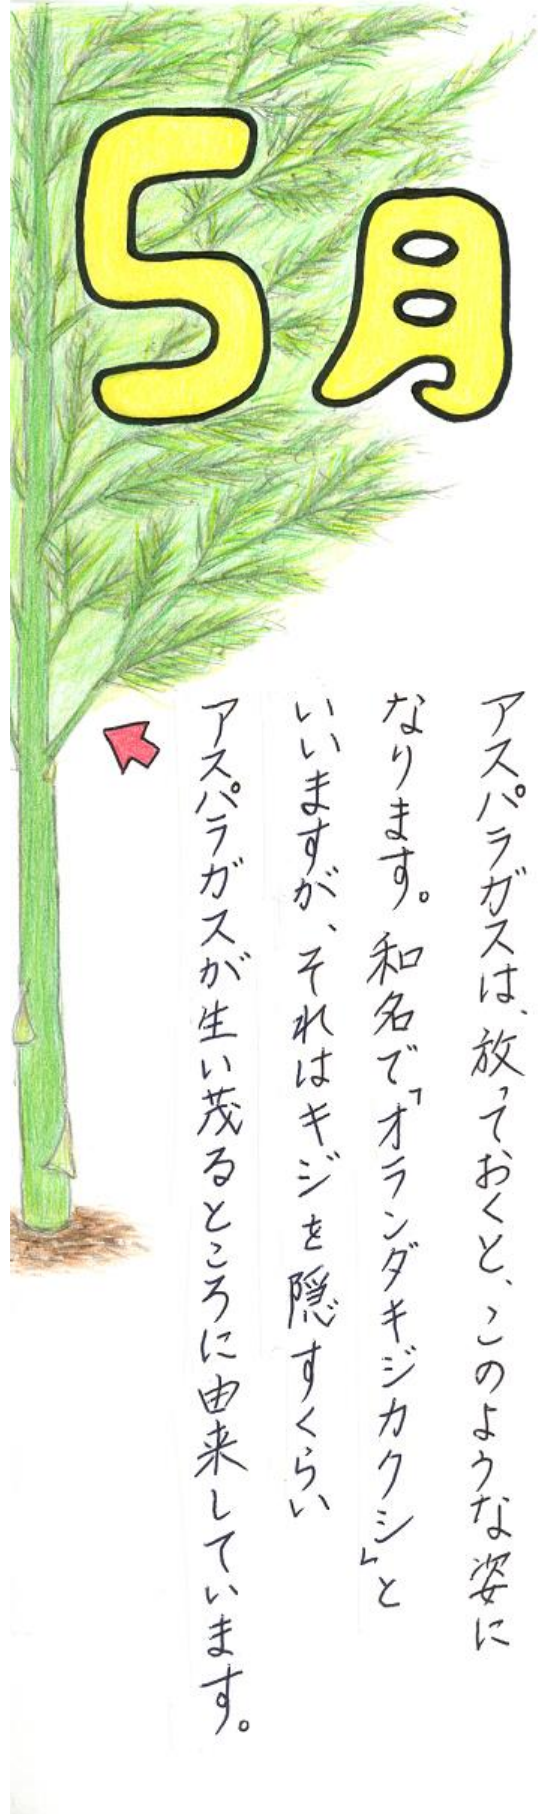 5月
アスパラガスは、放っておくと、このような姿に
なります。和名で「オランダキジカクシ」と
いいますが、それはキジを隠すくらい
アスパラガスが生い茂るところに由来しています。